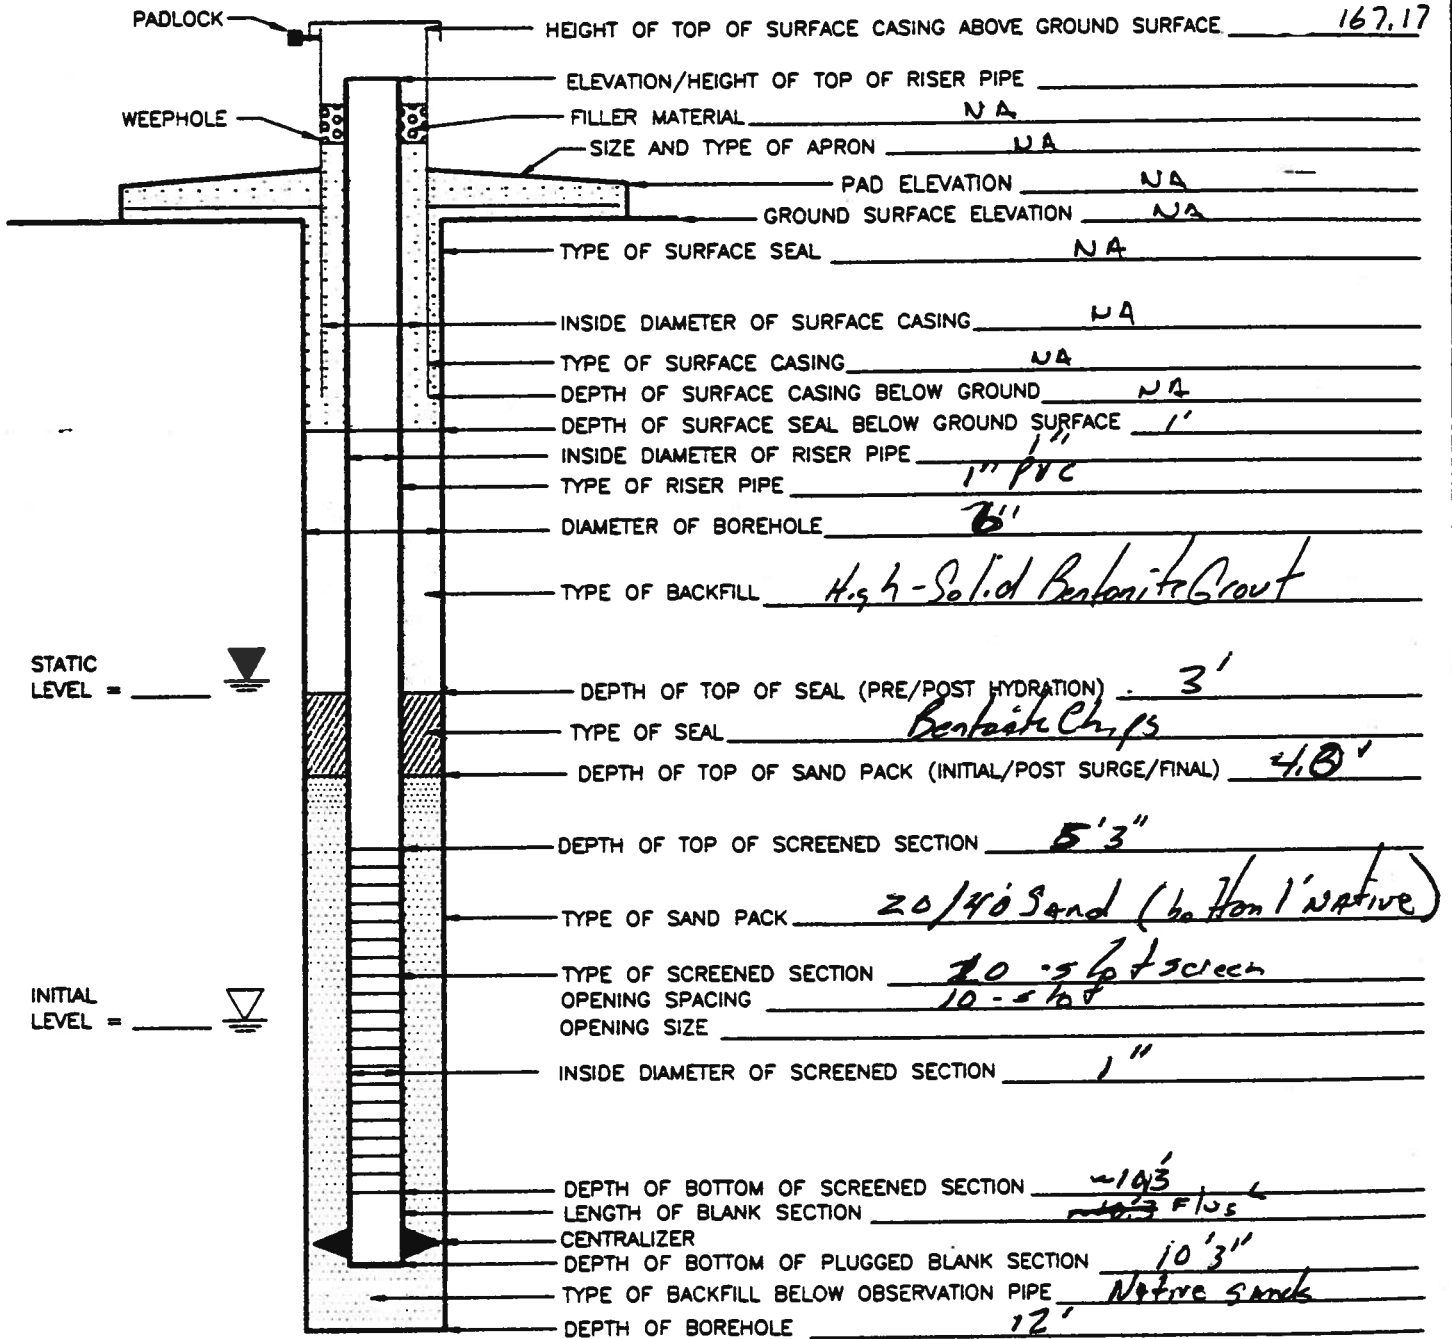 PADLOCK
HEIGHT OF TOP OF SURFACE CASING ABOVE GROUND SURFACE 167.17
ELEVATION/HEIGHT OF TOP OF RISER PIPE
WEEPHOLE
FILLER MATERIAL NA
SIZE AND TYPE OF APRON NA
PAD ELEVATION NA
GROUND SURFACE ELEVATION NA
TYPE OF SURFACE SEAL NA
INSIDE DIAMETER OF SURFACE CASING NA
TYPE OF SURFACE CASING NA
DEPTH OF SURFACE CASING BELOW GROUND NA
DEPTH OF SURFACE SEAL BELOW GROUND SURFACE 1'
INSIDE DIAMETER OF RISER PIPE 1"
TYPE OF RISER PIPE 1" PVC
DIAMETER OF BOREHOLE 6"
TYPE OF BACKFILL High-Solid Bentonite Grout
STATIC
LEVEL =
DEPTH OF TOP OF SEAL (PRE/POST HYDRATION) 3'
TYPE OF SEAL Bentonite Chips
DEPTH OF TOP OF SAND PACK (INITIAL/POST SURGE/FINAL)
DEPTH OF TOP OF SCREENED SECTION 5'3"
TYPE OF SAND PACK 20/40 Sand (bottom 1' Native)
TYPE OF SCREENED SECTION 10-slot screen
INITIAL
LEVEL =
OPENING SPACING 10-slot
OPENING SIZE
INSIDE DIAMETER OF SCREENED SECTION 1"
DEPTH OF BOTTOM OF SCREENED SECTION
LENGTH OF BLANK SECTION
CENTRALIZER
DEPTH OF BOTTOM OF PLUGGED BLANK SECTION 10'3"
TYPE OF BACKFILL BELOW OBSERVATION PIPE Native Sands
DEPTH OF BOREHOLE 12'